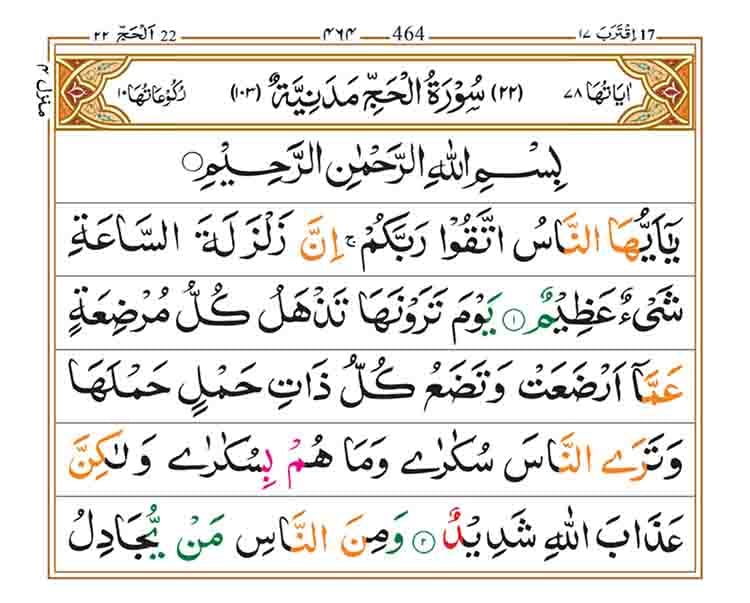 22 اَلْحَجّ ٢٢ ۴۶۴ 464 17 اِقْتَرَبَ ١٧
منزل ۴
اٰيَاتُهَا ٧٨ (٢٢) سُوْرَةُ الْحَجِّ مَدَنِيَّةٌ (١٠٣) رُكُوْعَاتُهَا ١٠
بِسْمِ اللهِ الرَّحْمٰنِ الرَّحِيْمِ
يٰۤاَيُّهَا النَّاسُ اتَّقُوْا رَبَّكُمْ ۚ اِنَّ زَلْزَلَةَ السَّاعَةِ
شَيْءٌ عَظِيْمٌ ١ يَوْمَ تَرَوْنَهَا تَذْهَلُ كُلُّ مُرْضِعَةٍ
عَمَّاۤ اَرْضَعَتْ وَتَضَعُ كُلُّ ذَاتِ حَمْلٍ حَمْلَهَا
وَتَرَي النَّاسَ سُكٰرٰي وَمَا هُمْ بِسُكٰرٰي وَلٰكِنَّ
عَذَابَ اللهِ شَدِيْدٌ ٢ وَمِنَ النَّاسِ مَنْ يُّجَادِلُ